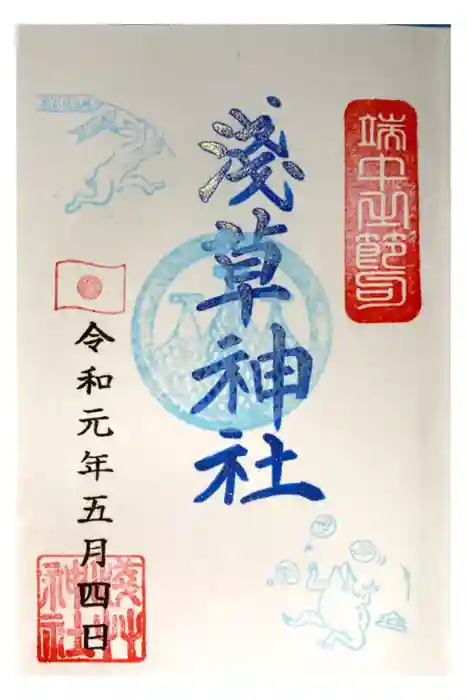 端午之節句
淺草神社
令和元年五月四日
淺草
神社